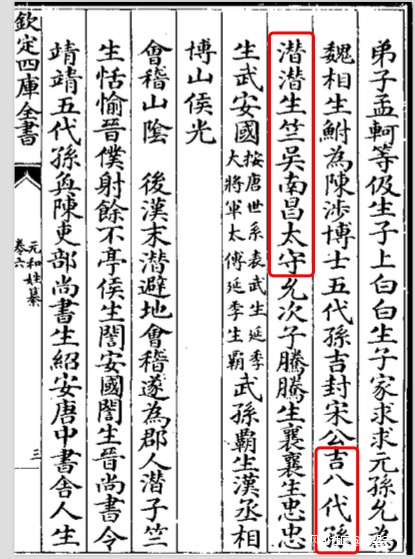 弟子孟軻等伋生子上白白生子家求求元孫允為
魏相生鮒為陳涉博士五代孫吉封宋公吉八代孫
潛潛生竺吳南昌太守允次子騰騰生襄襄生忠忠
生武安國
按唐世系表武生延季
大將軍太傅延季生霸
武孫霸生漢丞相
博山侯光
會稽山陰 後漢末潛避地會稽遂為郡人潛子竺
生恬愉晉僕射餘不亭侯生誾安國誾生晉尚書令
靖靖五代孫奐陳吏部尚書生紹安唐中書舍人生
欽定四庫全書
元和姓纂
卷六
三